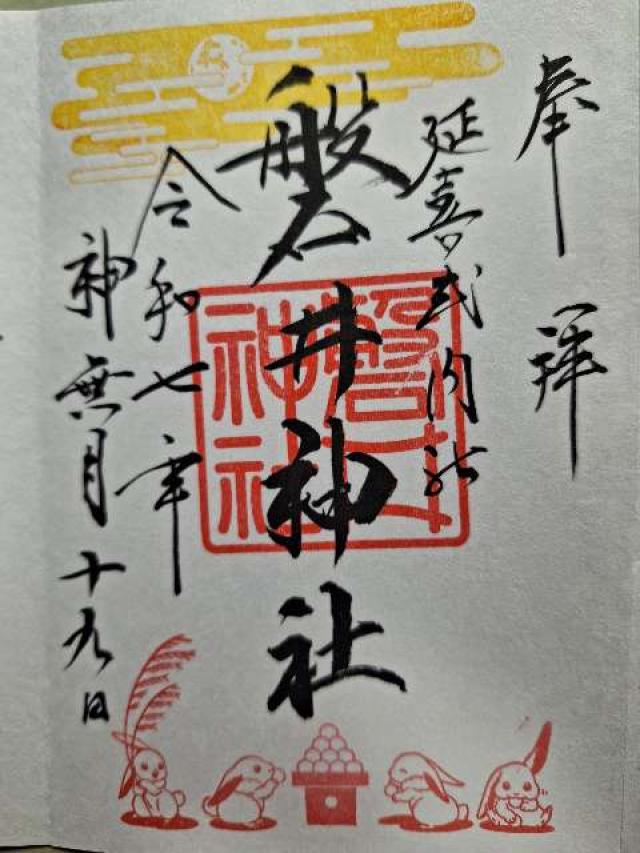 奉拝
延喜式内社
磐井神社
磐井神社
令和七年
神無月十九日